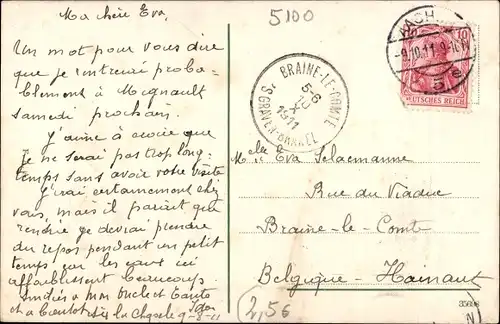 Ma chère Eva,
Un mot pour vous dire
que je rentrerai proba-
blement à Mignault
Samedi prochain.
J'aime à croire que
je ne serai pas trop long-
temps sans avoir votre visite
J'irai certainement chez
vous, mais il parait que
rentrée je devrai prendre
du repos pendant un petit
temps car les eaux ici
affaiblissent beaucoup.
et à bientôt
5100
AACHEN
-9.10.11.9-10V.
5 e
10
DEUTSCHES REICH
BRAINE-LE-COMTE
5-6
X
1911
'S GRAVEN-BRAKEL
Melle Eva Selaemanne
Rue du Viaduc
Braine-le-Comte
Belgique - Hainaut
2,56